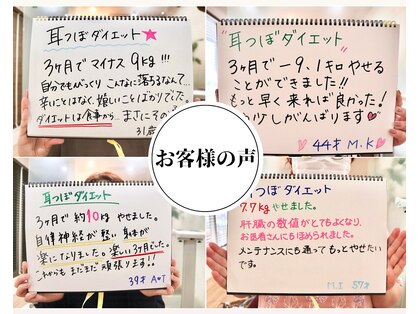 耳つぼダイエット★
3ヶ月でマイナス9kg!!!
自分でもびっくりこんなに落ちるなんて…
辛いことはなく、嬉しいことばかりでした。
ダイエットは食事から…まさにその
31歳
"耳つぼダイエット"
3ヶ月で-9.1キロやせる
ことができました!!
もっと早く来れば良かった!
少しがんばります♡
44才 M.K♡
お客様の声
耳つぼダイエット
3ヶ月で約10kgやせました。
自律神経が整い身体が
楽になりました。楽しい3ヶ月でした。
これからもまだまだ頑張ります!!
39才 A♥T
つぼダイエット
7.7kgやせました。
肝臓の数値がとてもよくなり、
お医者さんにもほめられました。
メンテナンスにも通ってもっとやせたい
です。
M.I 57才